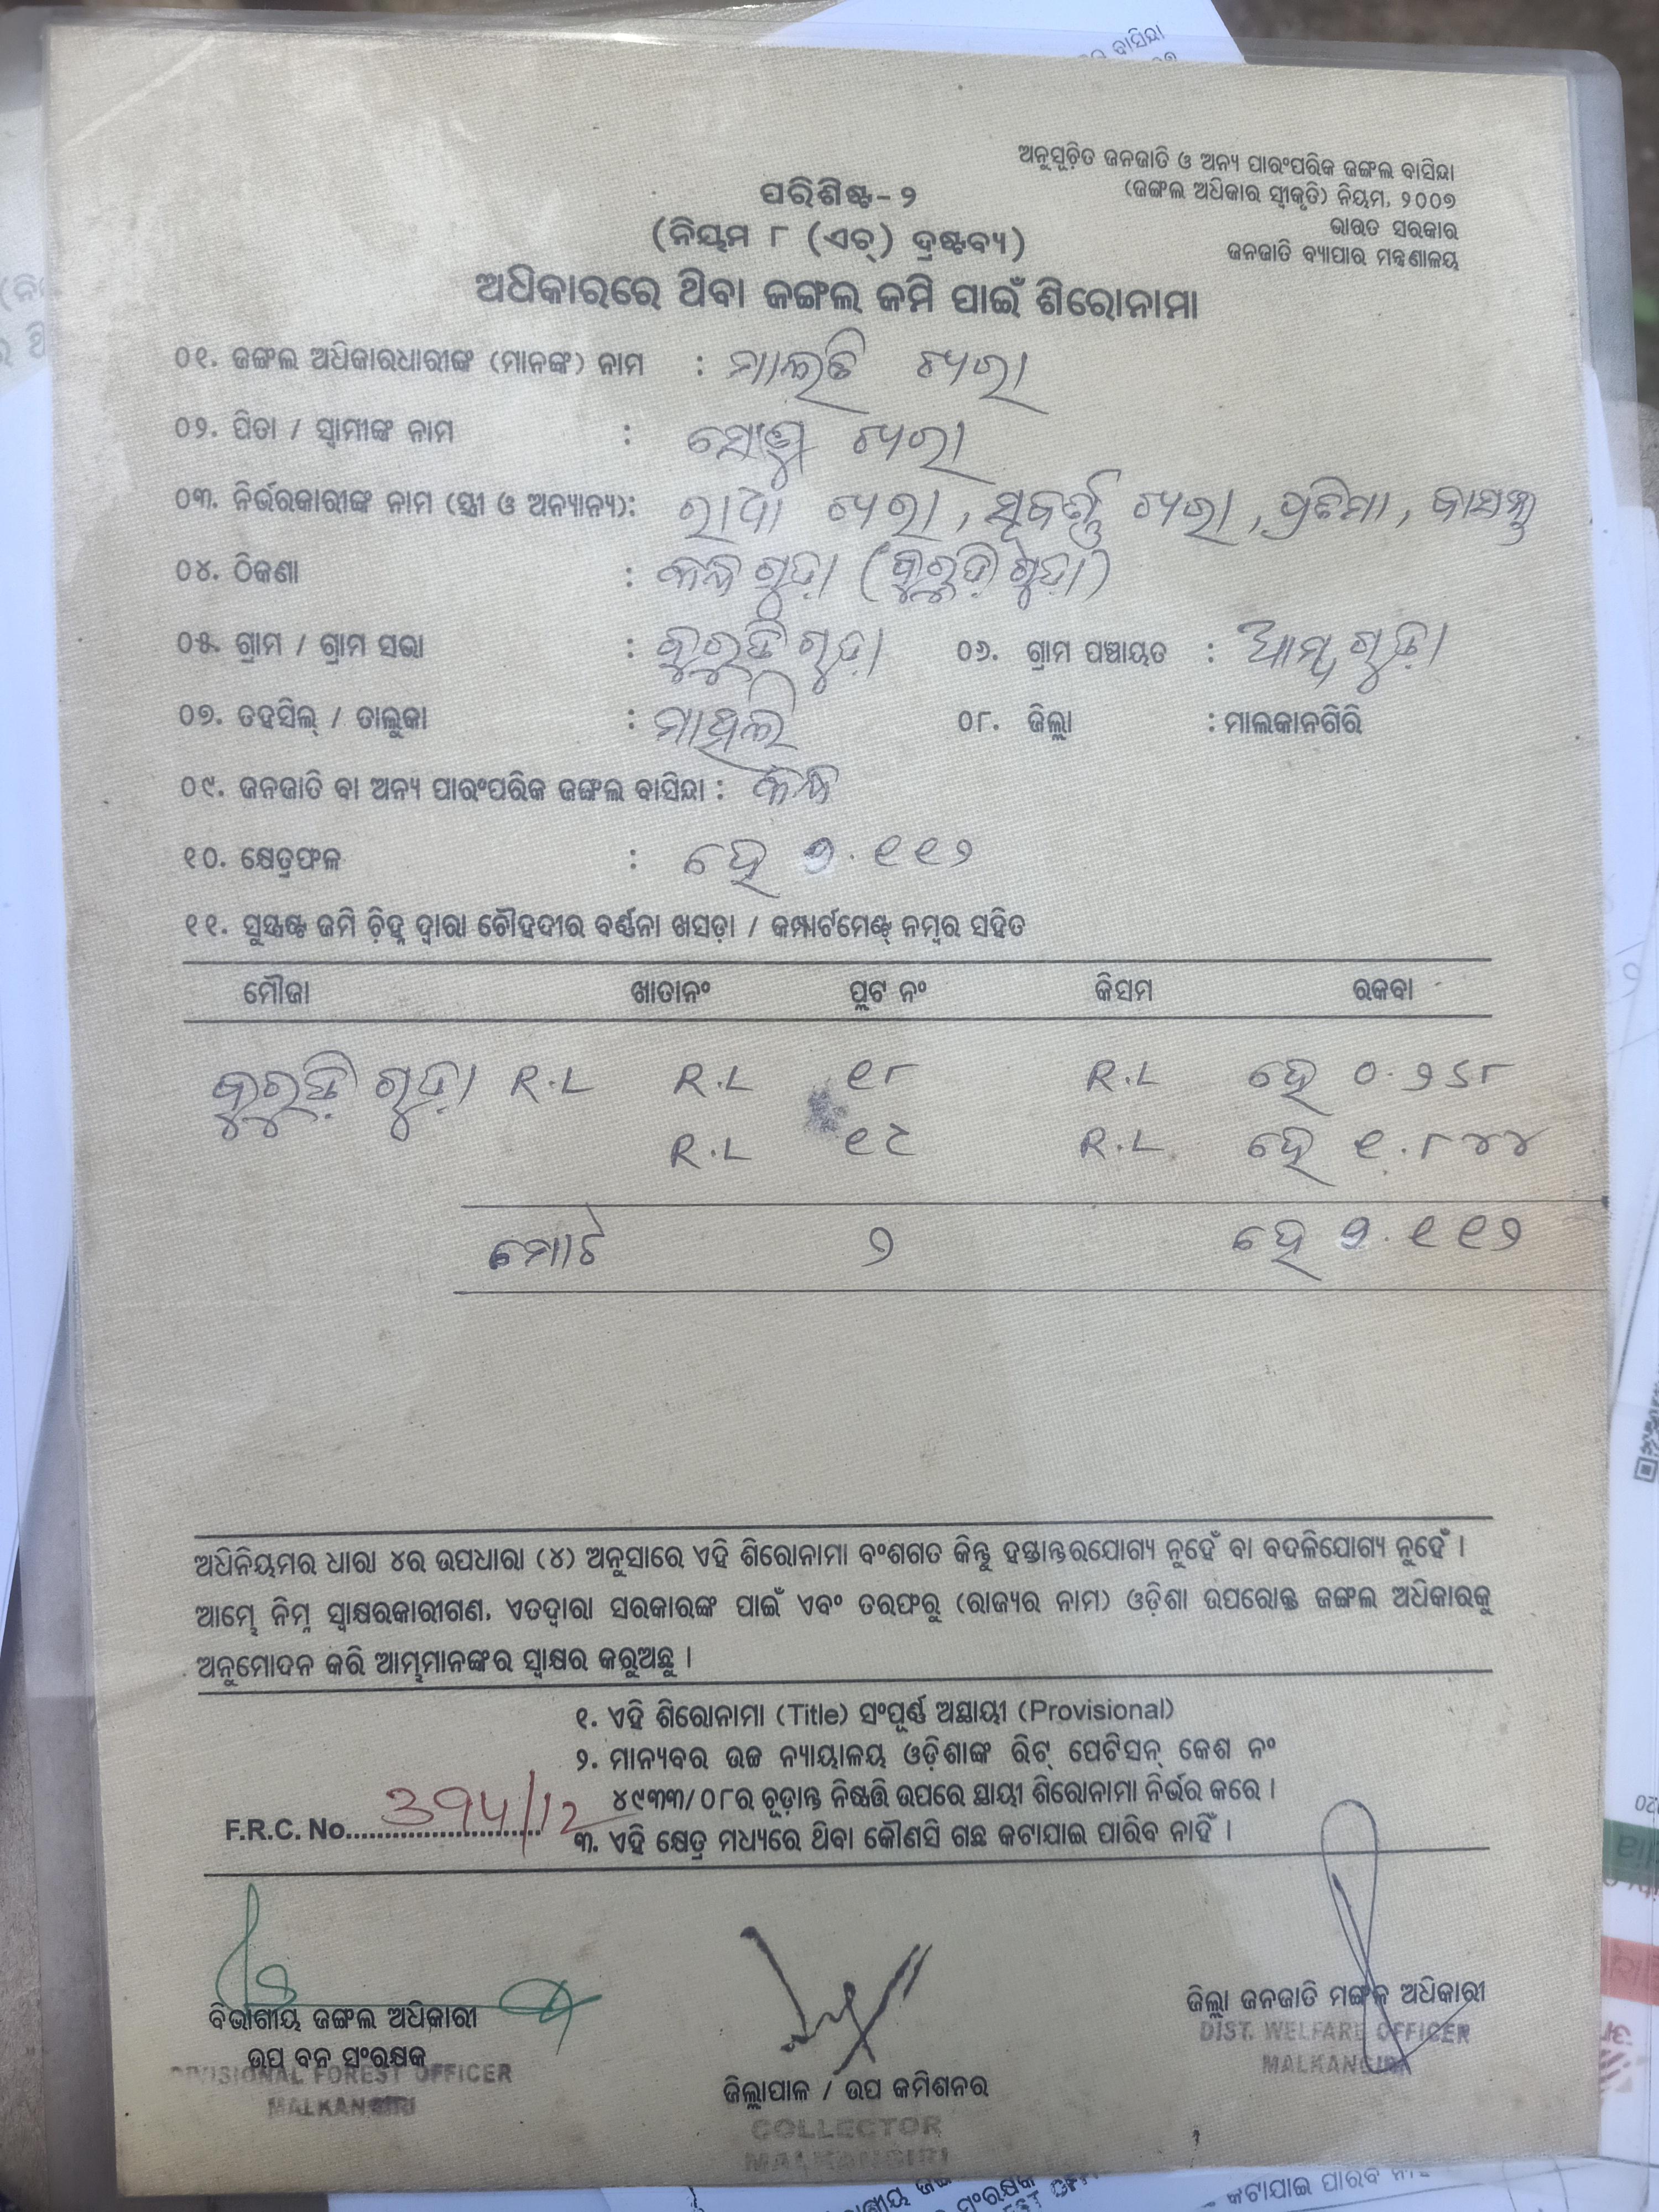 ଅନୁସୂଚିତ ଜନଜାତି ଓ ଅନ୍ୟ ପାରଂପରିକ ଜଙ୍ଗଲ ବାସିନ୍ଦା
(ଜଙ୍ଗଲ ଅଧିକାର ସ୍ୱୀକୃତି) ନିୟମ, ୨୦୦୭
ଭାରତ ସରକାର
ଜନଜାତି ବ୍ୟାପାର ମନ୍ତ୍ରଣାଳୟ
ପରିଶିଷ୍ଟ-୨
(ନିୟମ ୮ (ଏଚ୍) ଦ୍ରଷ୍ଟବ୍ୟ)
ଅଧିକାରରେ ଥିବା ଜଙ୍ଗଲ ଜମି ପାଇଁ ଶିରୋନାମା
୦୧. ଜଙ୍ଗଲ ଅଧିକାରଧାରୀଙ୍କ (ମାନଙ୍କ) ନାମ : ମାଲତି
୦୨. ପିତା / ସ୍ୱାମୀଙ୍କ ନାମ :
୦୩. ନିର୍ଭରକାରୀଙ୍କ ନାମ (ସ୍ତ୍ରୀ ଓ ଅନ୍ୟାନ୍ୟ): ରାଧା , , ପ୍ରତିମା,
୦୪. ଠିକଣା : ଗୁଡ଼ା
୦୫. ଗ୍ରାମ / ଗ୍ରାମ ସଭା : ୦୬. ଗ୍ରାମ ପଞ୍ଚାୟତ :
୦୭. ତହସିଲ୍ / ତାଲୁକା : ମାଥିଲି ୦୮. ଜିଲ୍ଲା : ମାଲକାନଗିରି
୦୯. ଜନଜାତି ବା ଅନ୍ୟ ପାରଂପରିକ ଜଙ୍ଗଲ ବାସିନ୍ଦା :
୧୦. କ୍ଷେତ୍ରଫଳ : ହେ ୨.୧୧୨
୧୧. ସୁସ୍ପଷ୍ଟ ଜମି ଚିହ୍ନ ଦ୍ୱାରା ଚୌହଦୀର ବର୍ଣ୍ଣନା ଖସଡ଼ା / କମ୍ପାର୍ଟମେଣ୍ଟ୍ ନମ୍ବର ସହିତ
ମୌଜା ଖାତାନଂ ପ୍ଲଟ ନଂ କିସମ ରକବା
R.L R.L ୧୮ R.L ହେ ୦.୨୬୮
R.L ୧୯ R.L ହେ ୧.୮୪୪
ମୋଟ ୨ ହେ ୨.୧୧୨
ଅଧିନିୟମର ଧାରା ୪ର ଉପଧାରା (୪) ଅନୁସାରେ ଏହି ଶିରୋନାମା ବଂଶଗତ କିନ୍ତୁ ହସ୍ତାନ୍ତରଯୋଗ୍ୟ ନୁହେଁ ବା ବଦଳିଯୋଗ୍ୟ ନୁହେଁ ।
ଆମ୍ଭେ ନିମ୍ନ ସ୍ୱାକ୍ଷରକାରୀଗଣ, ଏତଦ୍ୱାରା ସରକାରଙ୍କ ପାଇଁ ଏବଂ ତରଫରୁ (ରାଜ୍ୟର ନାମ) ଓଡ଼ିଶା ଉପରୋକ୍ତ ଜଙ୍ଗଲ ଅଧିକାରକୁ
ଅନୁମୋଦନ କରି ଆମ୍ଭମାନଙ୍କର ସ୍ୱାକ୍ଷର କରୁଅଛୁ ।
୧. ଏହି ଶିରୋନାମା (Title) ସଂପୂର୍ଣ୍ଣ ଅସ୍ଥାୟୀ (Provisional)
୨. ମାନ୍ୟବର ଉଚ୍ଚ ନ୍ୟାୟାଳୟ ଓଡ଼ିଶାଙ୍କ ରିଟ୍ ପେଟିସନ୍ କେଶ ନଂ
୪୯୩୩/୦୮ର ଚୂଡ଼ାନ୍ତ ନିଷ୍ପତ୍ତି ଉପରେ ସ୍ଥାୟୀ ଶିରୋନାମା ନିର୍ଭର କରେ ।
F.R.C. No. 394/12
୩. ଏହି କ୍ଷେତ୍ର ମଧ୍ୟରେ ଥିବା କୌଣସି ଗଛ କଟାଯାଇ ପାରିବ ନାହିଁ ।
ବିଭାଗୀୟ ଜଙ୍ଗଲ ଅଧିକାରୀ
ଉପ ବନ ସଂରକ୍ଷକ
DIVISIONAL FOREST OFFICER
MALKANGIRI
ଜିଲ୍ଲାପାଳ / ଉପ କମିଶନର
COLLECTOR
MALKANGIRI
ଜିଲ୍ଲା ଜନଜାତି ମଙ୍ଗଳ ଅଧିକାରୀ
DIST. WELFARE OFFICER
MALKANGIRI